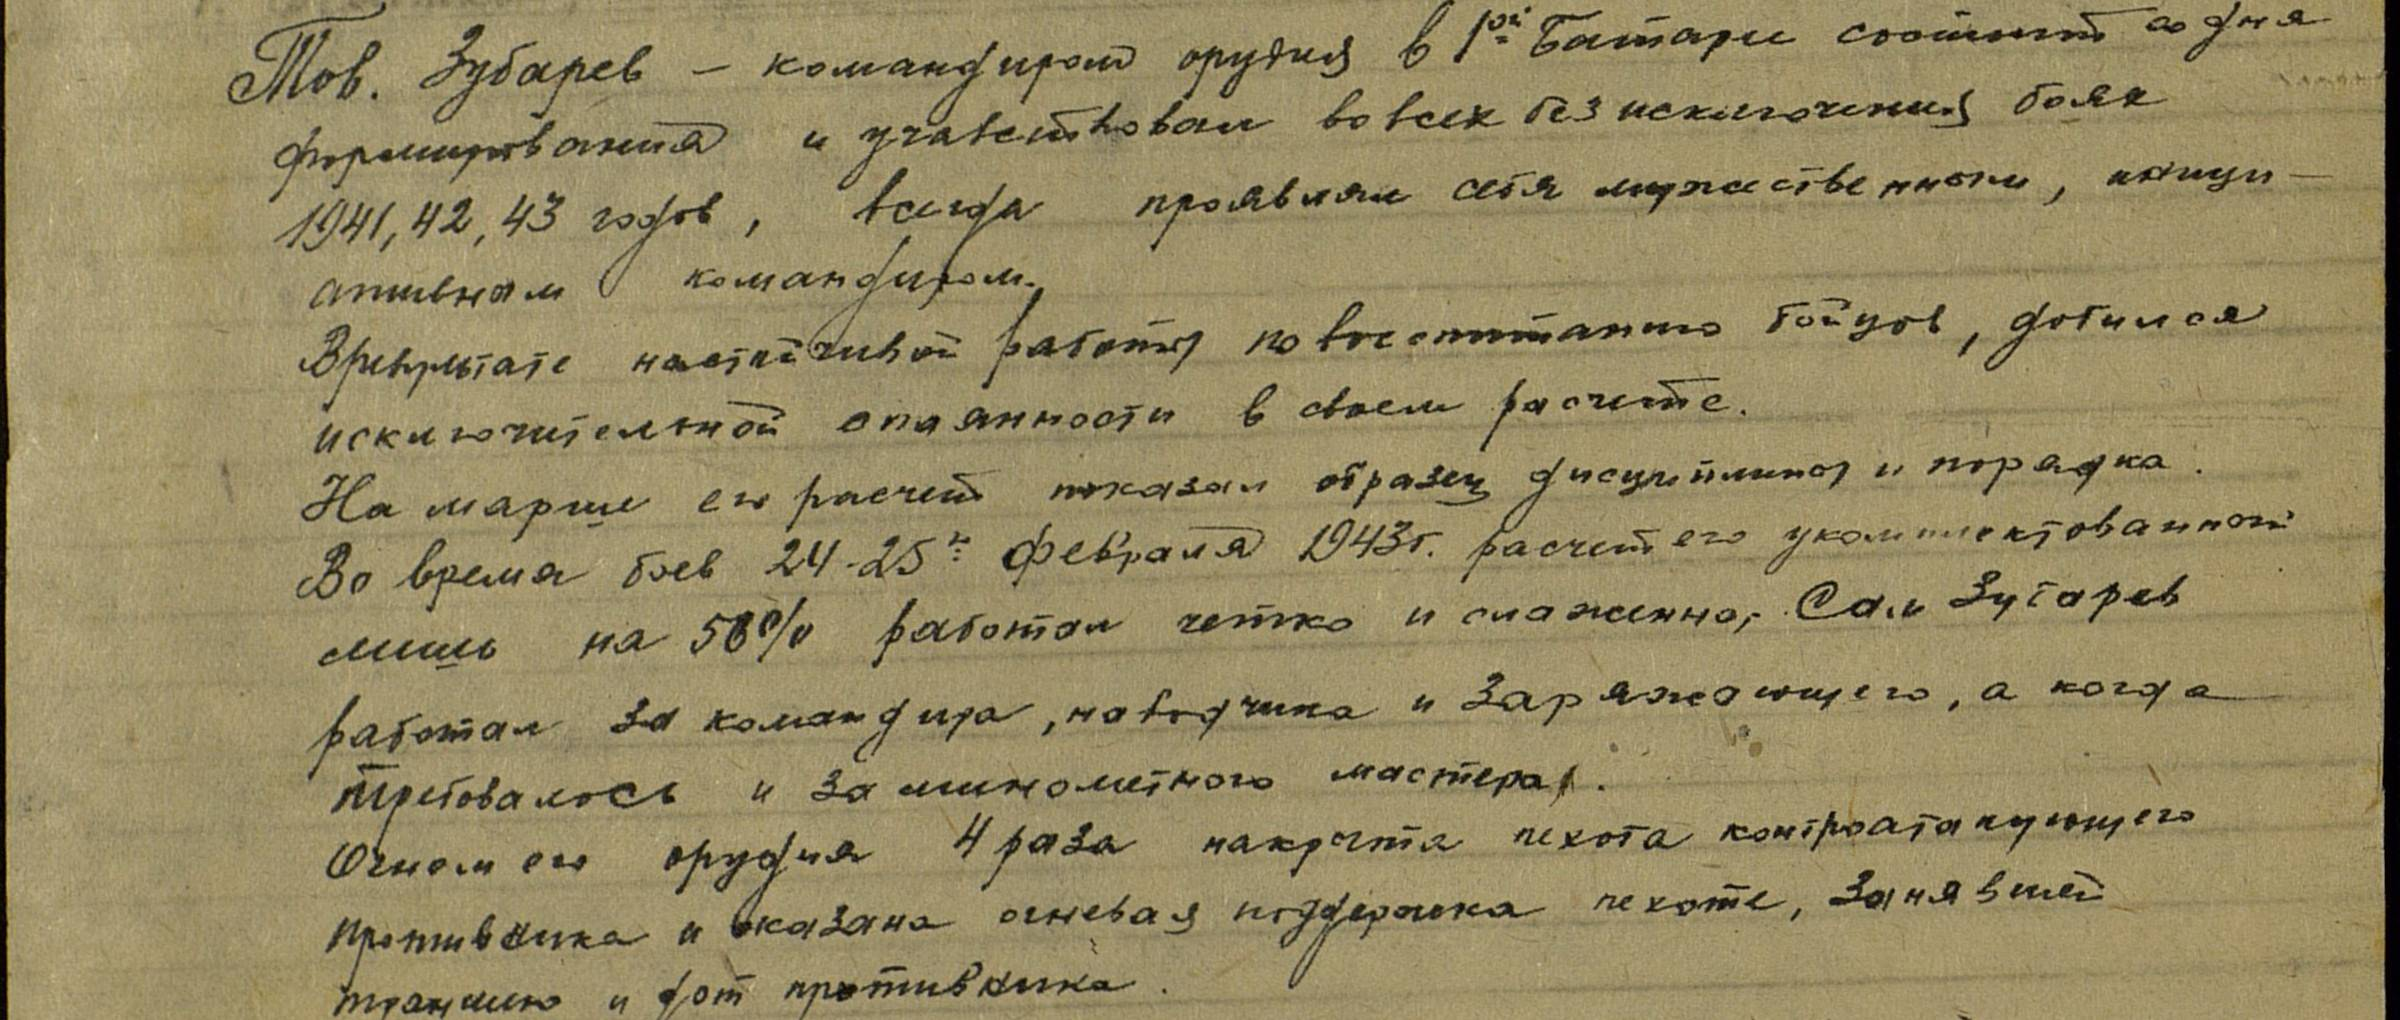 Тов. Зубарев – командиром орудия в 1ой Батареи состоит со дня
формирования и участвовал во всех без исключения боях
1941, 42, 43 годов, всегда проявлял себя мужественным, иници-
ативным командиром.
В результате настойчивой работы по воспитанию бойцов, добился
исключительной спаянности в своем расчете.
На марше его расчет показал образец дисциплины и порядка.
Во время боев 24-25го февраля 1943г. расчет его укомплектованной
лишь на 50% работал четко и слаженно, Сам Зубарев
работал за командира, наводчика и заряжающего, а когда
требовалось и за минометного мастера.
Огнем его орудия 4 раза накрыта пехота контратакующего
противника и оказана огневая поддержка пехоте, занявшей
траншею и дот противника.